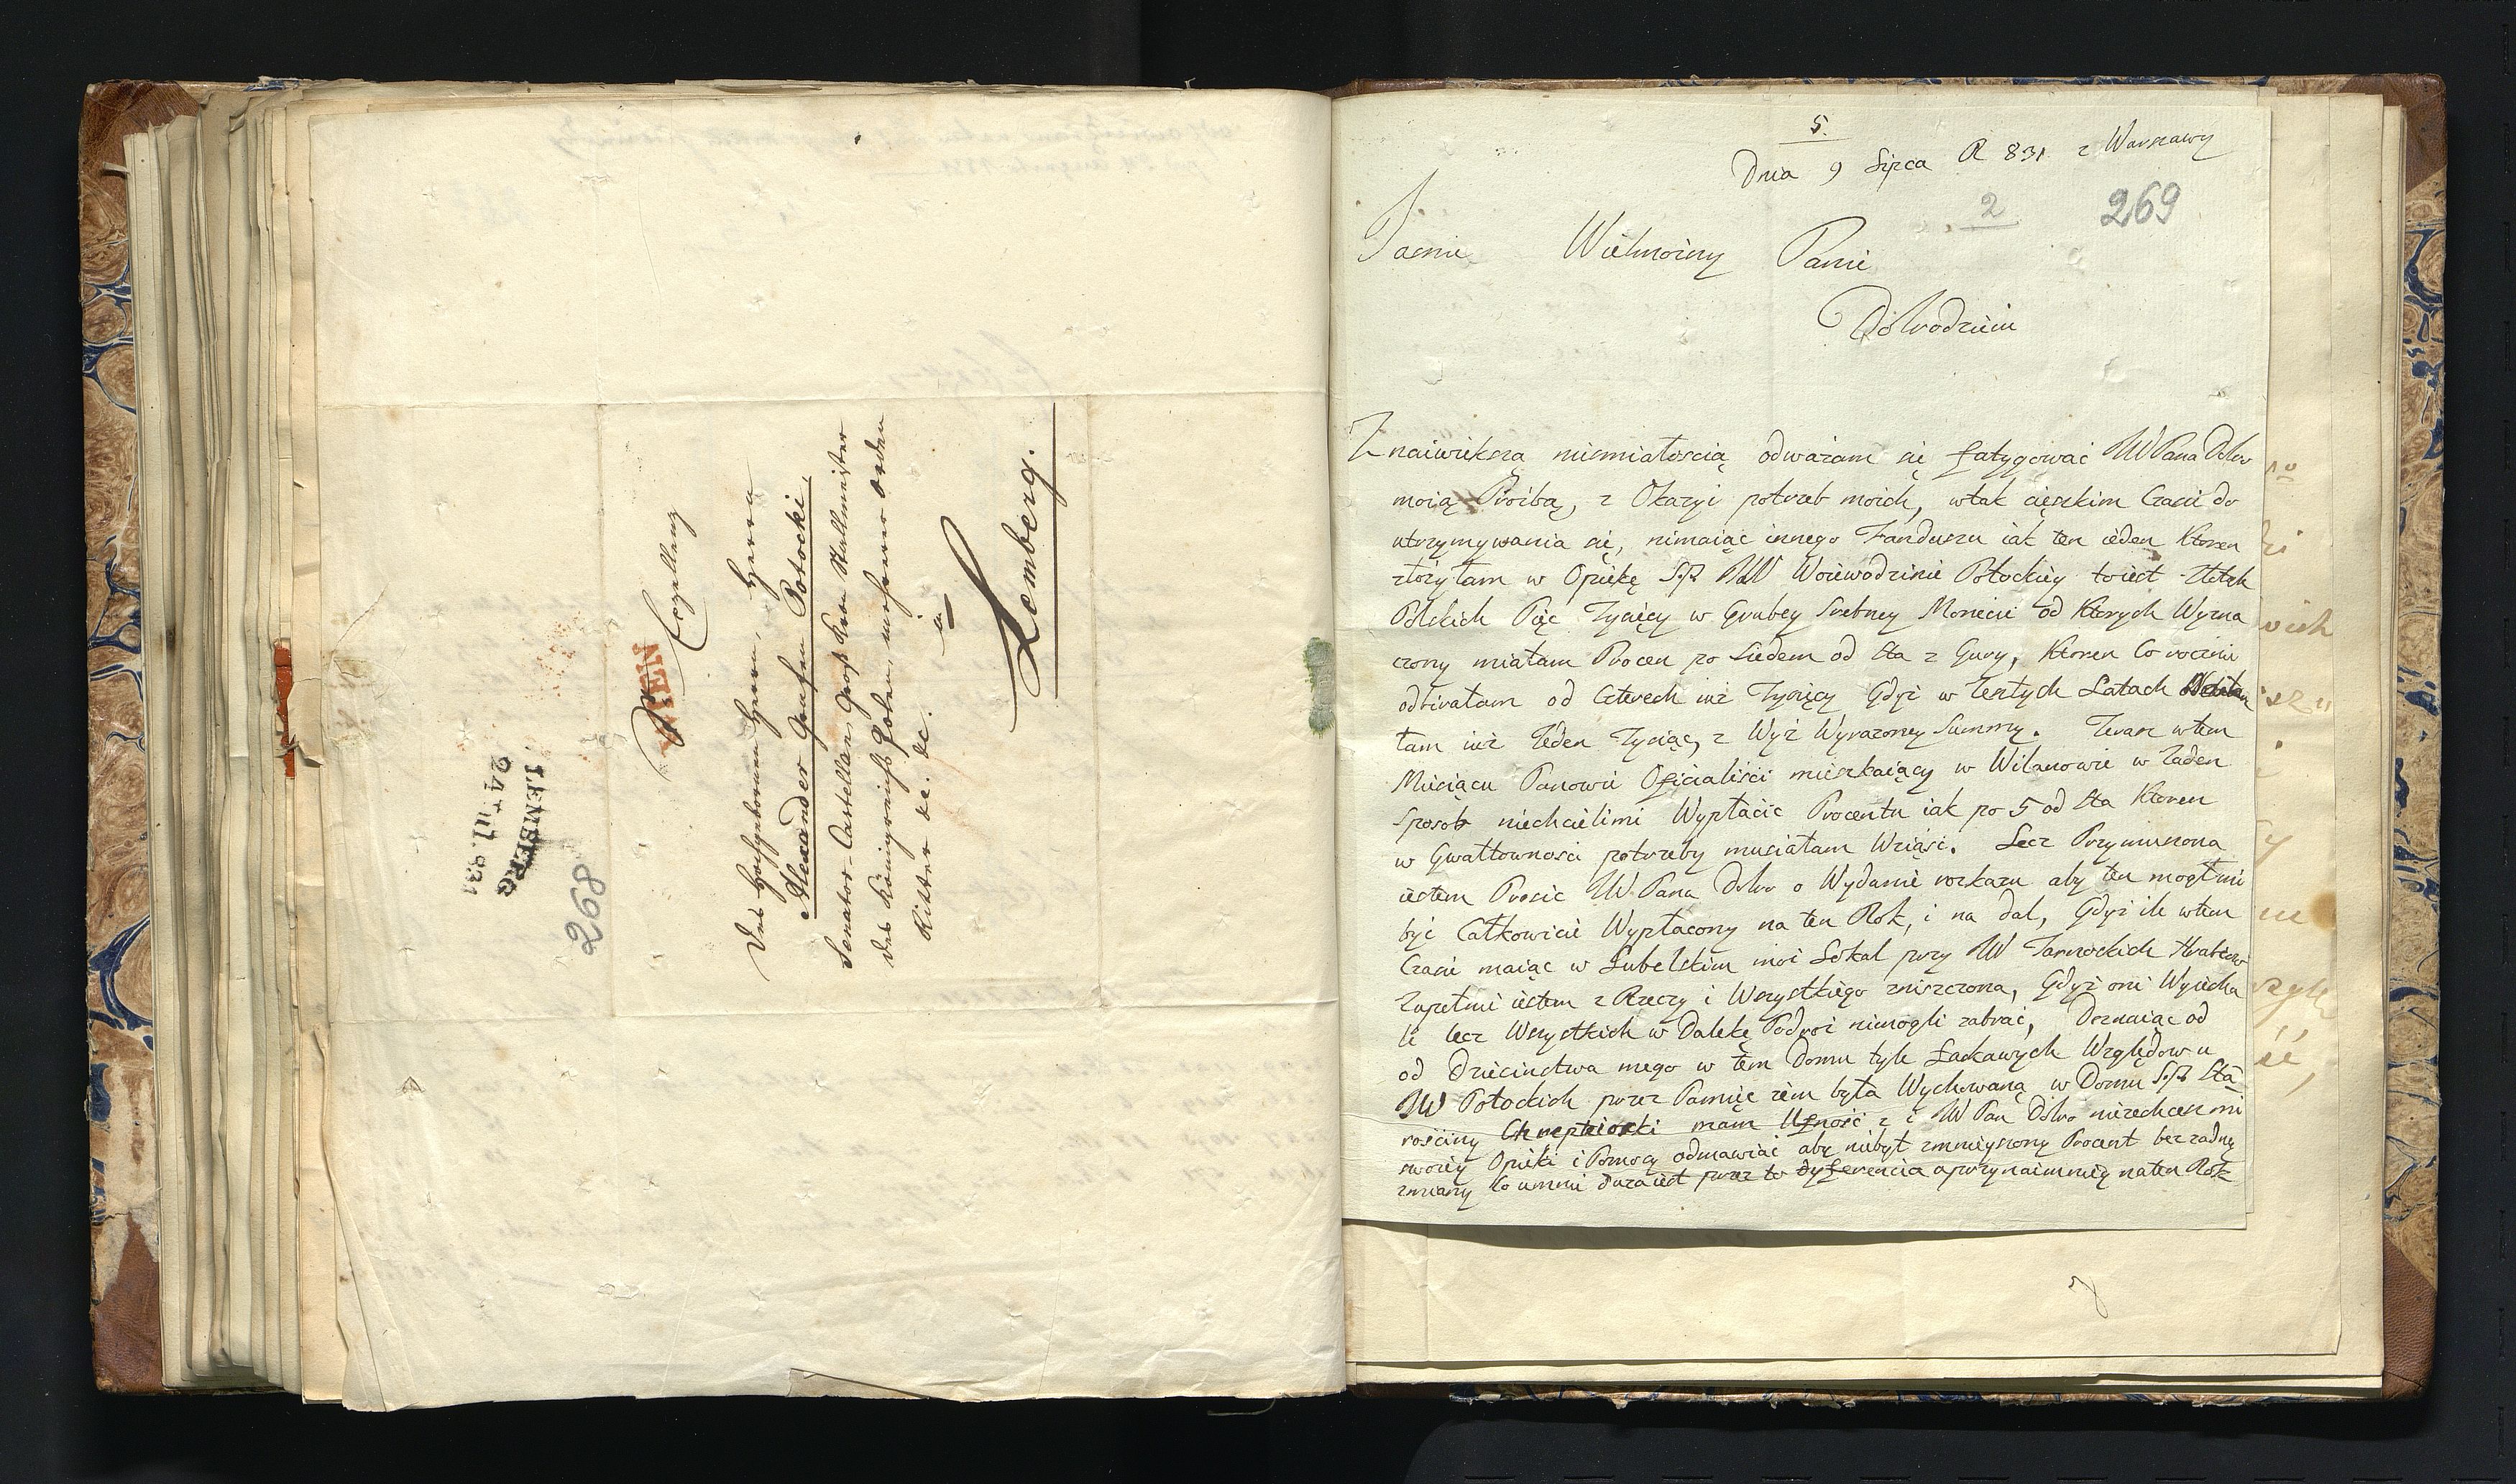 WIEN
Sr Excellenz
Des Hochgebornen Herrn, Herrn
Alexander Grafen Potocki,
Senator-Castellan, Groß Stallmeister
des Königreichs Polen, mehrerer Orden
Ritter &c. &c.
in
Lemberg.
LEMBERG
24 JUL. 831
268
5.
Dnia 9 Lipca R 831 z Warszawy
2
269
Jasnie Wielmożny Panie
Dobrodzieiu
Z naiwiększą nieśmiałoscią odważam się fatygować JWPana Dobro
moią Prośbą, z Okazyi potrzeb moich, wtak cięszkim Czasie do
utrzymywania się, nimaiąc innego Funduszu iak ten ieden Ktoren
złożyłam w Opiekę S.P. JW Woiewodzinie Potockiey toiest Złotych
Polskich Pięc Tysięcy w Grubey Srebney Monecie od Ktorych Wyzna
czony miałam Procen po Siedem od Sta z Gury, Ktoren Co rocznie
odbirałam od Czterech iuż Tysięcy Gdyż w Zeszłych Latach
łam iuż Jeden Tysiąc, z Wyż Wyrazoney Summy. Teraz wtem
Miesiącu Panowie Oficialiści mieszkaiący w Wilanowie w Żaden
Sposob niechcielimi Wypłacic Procentu iak po 5 od Sta Ktoren
w Gwałtownosci potrzeby musiałam Wziąść. Lecz Przymuszona
iestem Prosic JW. Pana Dobro o Wydanie rozkazu aby ten mogł mi
być Całkowicie Wypłacony na ten Rok, i na dal, Gdyż ile wtem
Czasie maiąc w Lubelskim moi Lokal przy JW Tarnockich Hrabiow
Zupełnie iestem z Rzeczy i Wszystkiego zniszczona, Gdyż oni Wyiecha
li lecz Wszystkich w Dalekę Podroż niemogli zabrać, Doznaiąc od
od Dziecinstwa mego w tem Domu tyle Łaskawych Względow u
JW Potockich przez Pamięc żem była Wychowaną w Domu S.P. Sta
rościny mam Ufność z i JW Pan Dobro niezechcesz mi
swoiey Opieki i Pomocy odmawiać aby niebył zmnieyszony Procent bez żadney
zmiany bo umnie duza iest przez to dyferencia aprzynaimniey naten Rok